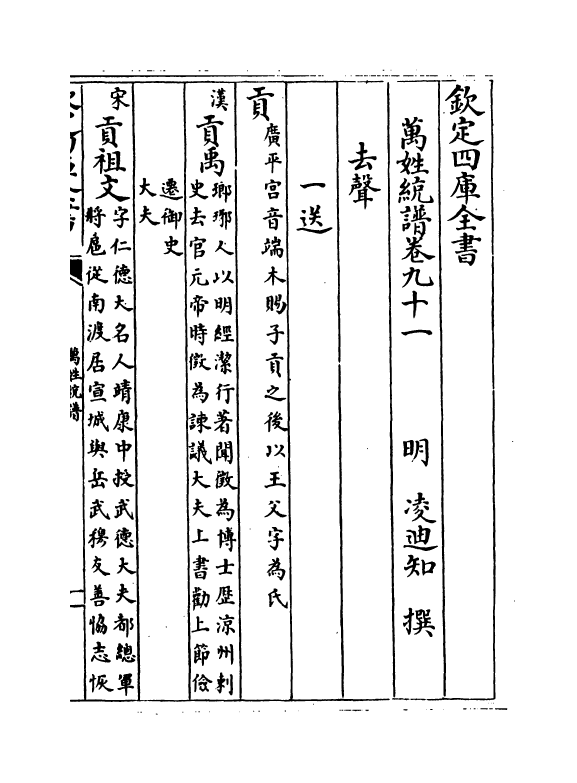 欽定四庫全書
萬姓統譜卷九十一
明 凌迪知 撰
去聲
一送
貢
廣平宮音端木賜子貢之後以王父字為氏
漢
貢禹
瑯琊人以明經潔行著聞徵為博士歷涼州刺
史去官元帝時徵為諫議大夫上書勸上節儉
遷御史
大夫
宋
貢祖文
字仁德大名人靖康中授武德大夫都總軍
將扈從南渡居宣城與岳武穆友善恊志恢
萬姓統譜
一